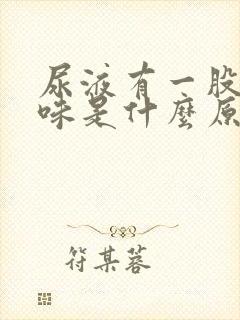 尿液有一股
味是什麼原
符某蓉